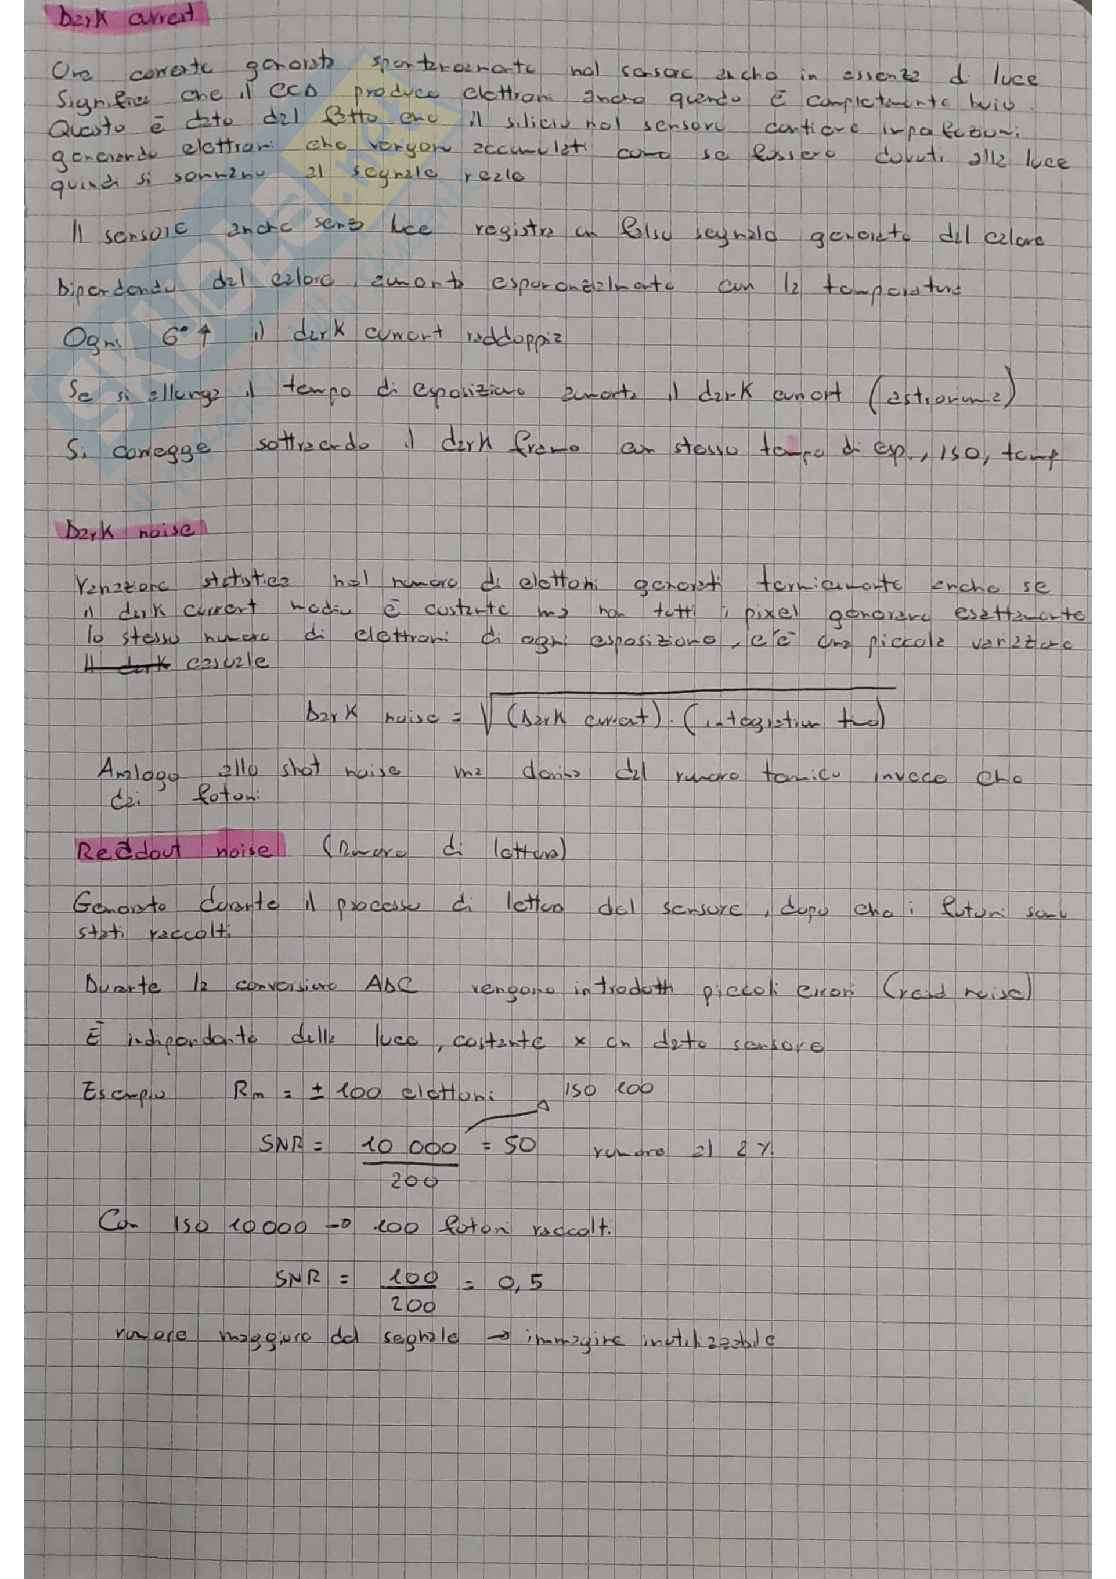 Dark current
Una corrente generata spontaneamente nel sensore anche in assenza di luce
Significa che il CCD produce elettroni anche quando è completamente buio.
Questo è dato dal fatto che il silicio nel sensore contiene imperfezioni
generando elettroni che vengono accumulati come se fossero dovuti alla luce
quindi si sommano al segnale reale
Il sensore anche senza luce registra un falso segnale generato dal calore
Dipendendo dal calore, aumenta esponenzialmente con la temperatura
Ogni 6° ↑ il dark current raddoppia
Se si allunga il tempo di esposizione aumenta il dark current (astronomia)
Si corregge sottraendo il dark frame con stesso tempo di esp., ISO, temp
Dark noise
Variazione statistica nel numero di elettroni generati termicamente anche se
il dark current medio è costante ma non tutti i pixel generano esattamente
lo stesso numero di elettroni di ogni esposizione, c'è una piccola variazione
casuale
Dark noise = √(Dark current) · (integration time)
Analogo allo shot noise ma deriva dal rumore termico invece che
dai fotoni
Readout noise (Rumore di lettura)
Generato durante il processo di lettura del sensore, dopo che i fotoni sono
stati raccolti
Durante la conversione ADC vengono introdotti piccoli errori (read noise)
È indipendente dalla luce, costante x un dato sensore
Esempio Rn = ± 100 elettroni ISO 100
SNR = 10 000 / 200 = 50 rumore al 2%
Con ISO 10000 → 100 fotoni raccolti
SNR = 100 / 200 = 0,5
rumore maggiore del segnale → immagine inutilizzabile
SKUOLA.net